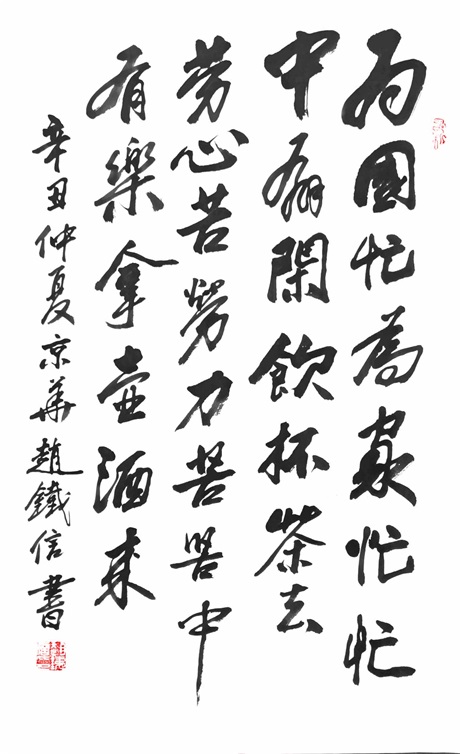 为國忙為家忙忙
中偷閑飲杯茶去
劳心苦勞力苦苦中
有樂拿壺酒来
辛丑仲夏京華趙鐵信書